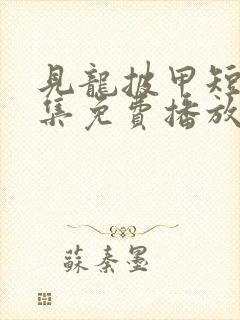 見龍披甲短
集免費播放
蘇秦墨